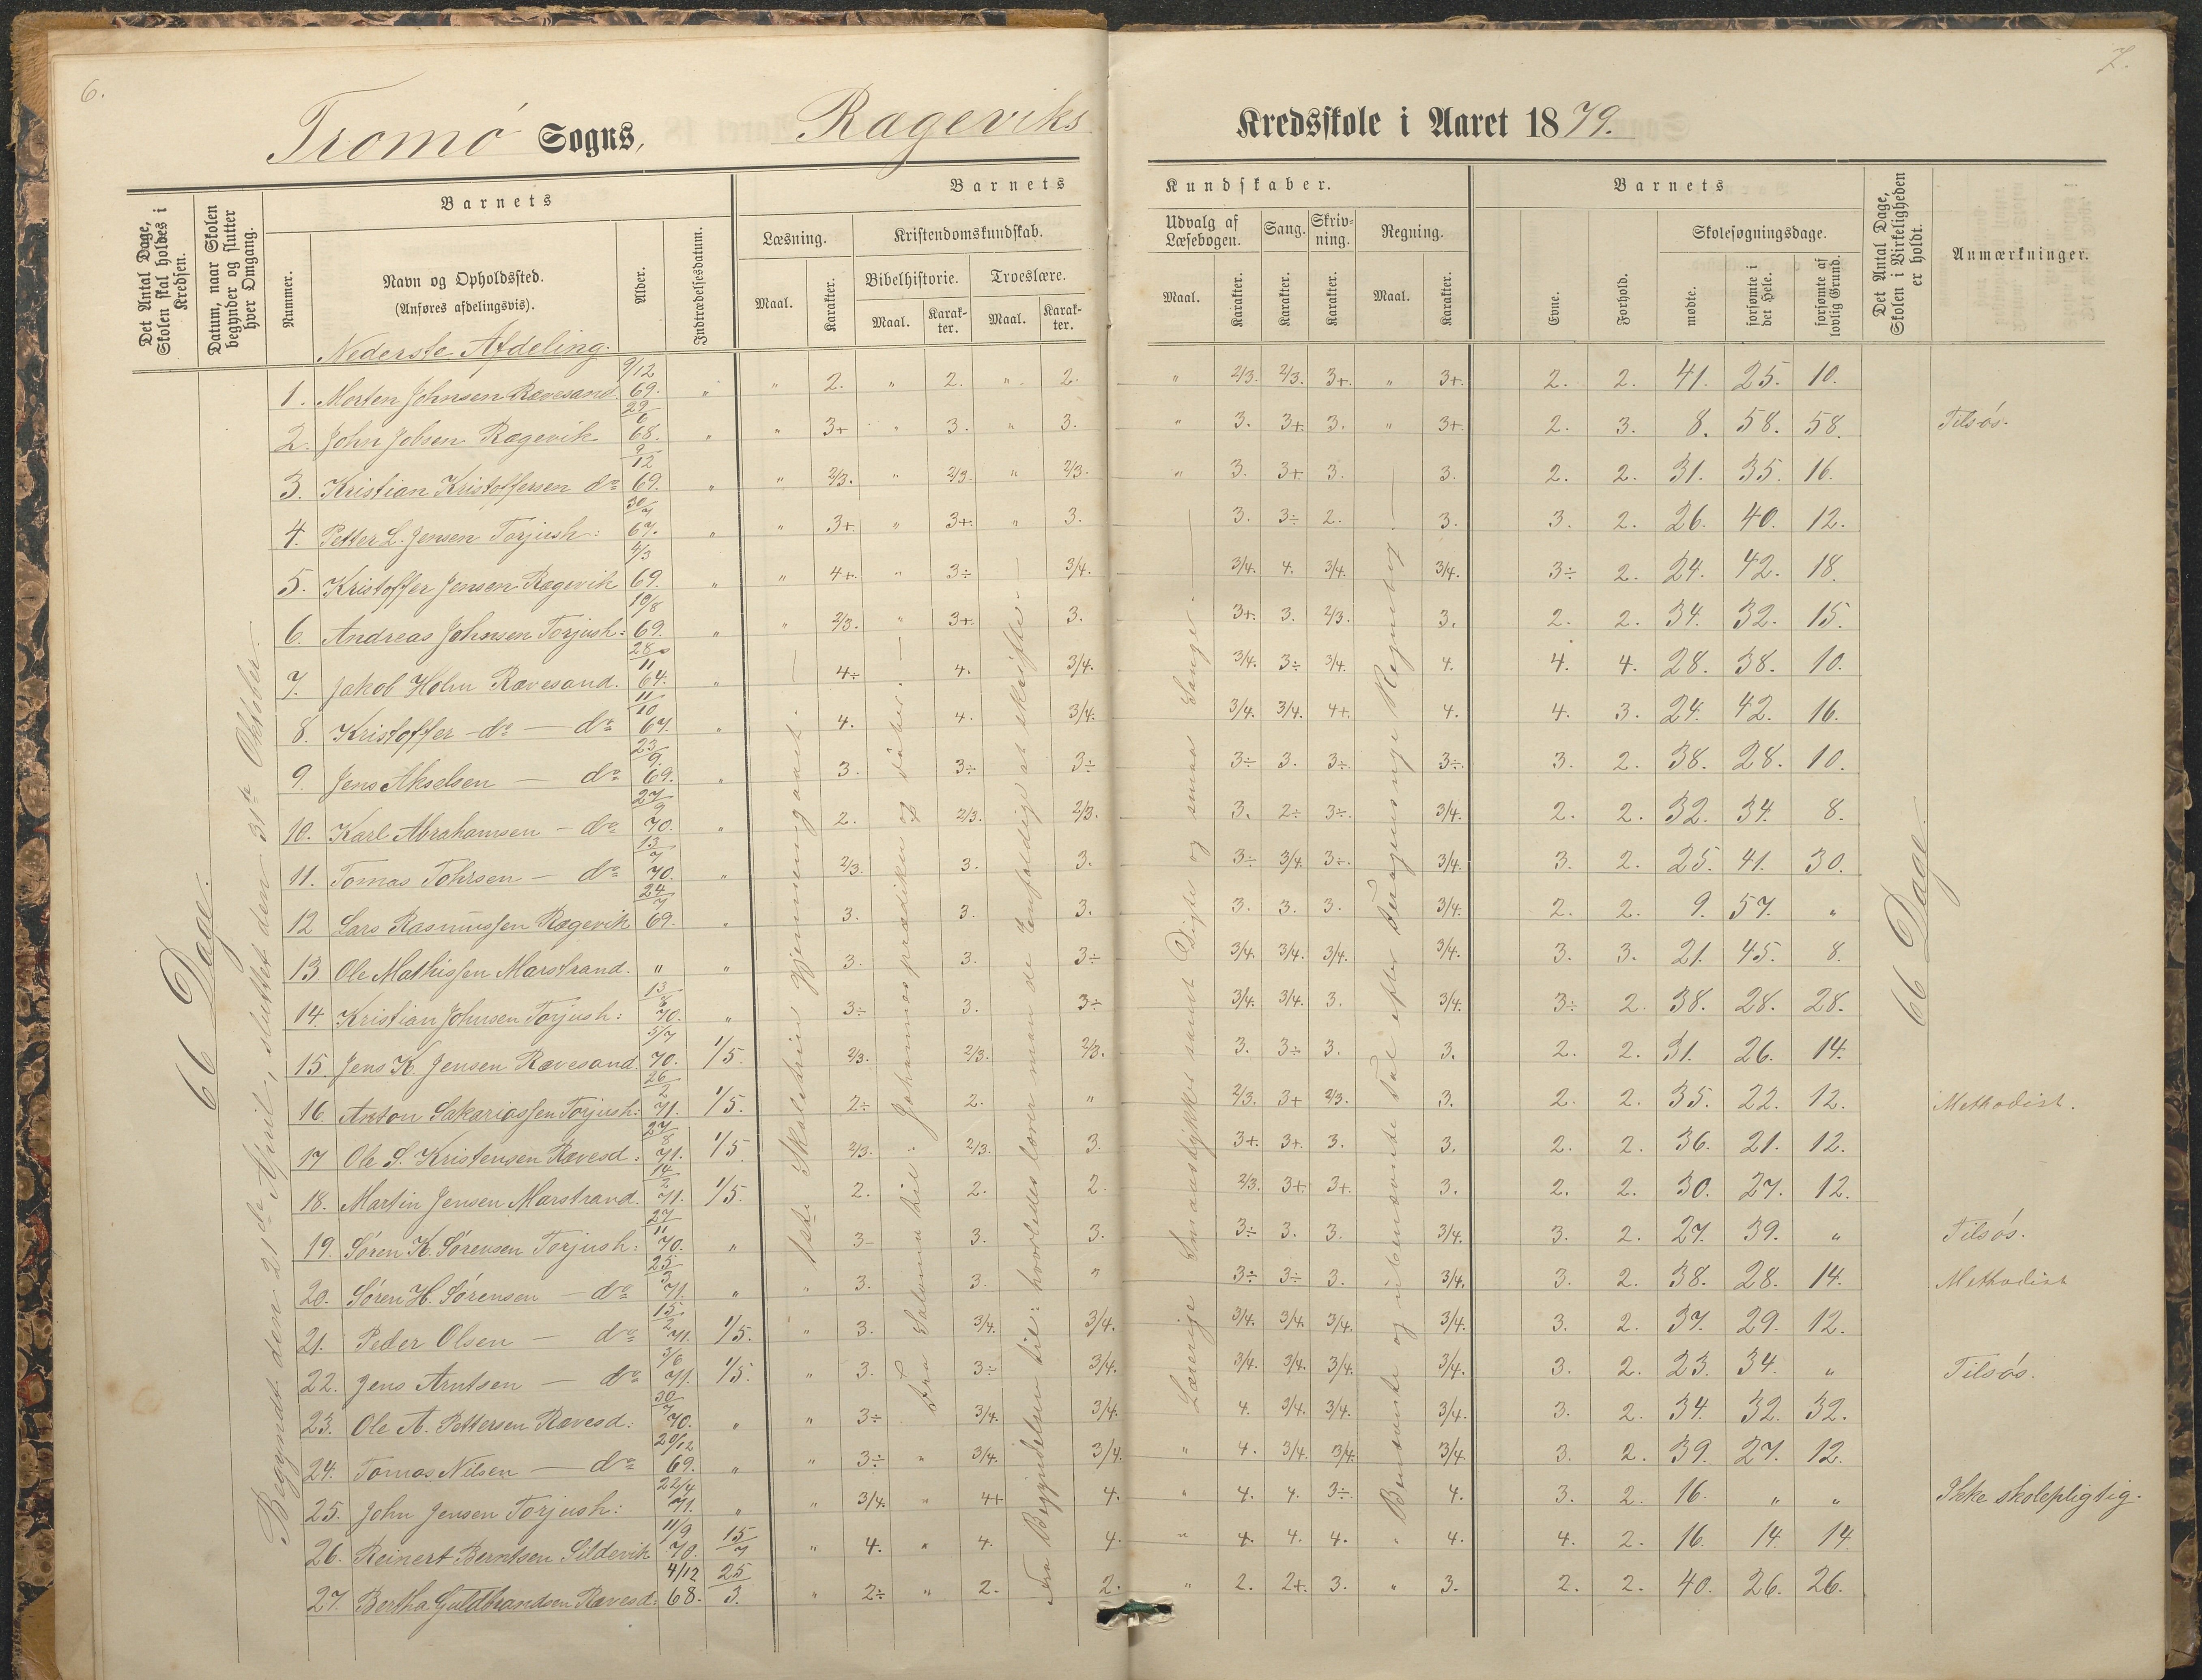 6.
7.
Tromö Sogns, Rageviks Kredsskole i Aaret 1879.
Det Antal Dage, Skolen skal holdes i Kredsen.
Datum, naar Skolen begynder og slutter hver Omgang.
Barnets
Nummer.
Navn og Opholdssted.
(Anføres afdelingsvis).
Alder.
Indtrædelsesdatum.
Barnets Kundskaber.
Læsning.
Maal.
Karakter.
Kristendomskundskab.
Bibelhistorie.
Maal.
Karakter.
Troeslære.
Maal.
Karakter.
Udvalg af Læsebogen.
Maal.
Karakter.
Sang.
Karakter.
Skrivning.
Karakter.
Regning.
Maal.
Karakter.
Barnets
Evne.
Forhold.
Skolesøgningsdage.
mødte.
forsømte i det Hele.
forsømte af lovlig Grund.
Det Antal Dage, Skolen i Virkeligheden er holdt.
Anmærkninger.
66 Dage.
Begyndt den 21de April, sluttet den 31te Oktober.
Nederste Afdeling.
1. Morten Johnsen Rævesand. 9/12 69. " " 2. " 2. " 2. " 2/3. 2/3. 3+. " 3+. 2. 2. 41. 25. 10.
2. John Jobsen Ragevik 29/6 68. " " 3+ " 3. " 3. " 3. 3+. 3. " 3+. 2. 3. 8. 58. 58. Tilsøs.
3. Kristian Kristoffersen do 9/12 69. " " 2/3. " 2/3. " 2/3. " 3. 3+. 3. 3. 2. 2. 31. 35. 16.
4. Petter L. Jensen Torjush: 30/7 67. " " 3+. " 3+. " 3. 3. 3÷ 2. 3. 3. 2. 26. 40. 12.
5. Kristoffer Jensen Ragevik 4/3 69. " " 4+. " 3÷ 3/4. 3/4. 4. 3/4. 3/4. 3÷ 2. 24. 42. 18.
6. Andreas Johnsen Torjush: 10/8 69. " " 2/3. " 3+. 3. 3+. 3. 2/3. 3. 2. 2. 34. 32. 15.
7. Jakob Holm Rævesand. 28/11 64. " 4÷ 4. 3/4. 3/4. 3÷ 3/4. 4. 4. 4. 28. 38. 10.
8. Kristoffer do — do 11/10 67. " 4. 4. 3/4. 3/4. 3/4. 4+. 4. 4. 3. 24. 42. 16.
9. Jens Akselsen — do 23/9 69. " 3. 3÷ 3÷ 3÷ 3. 3÷ 3÷. 3. 2. 38. 28. 10.
10. Karl Abrahamsen — do 27/9 70. " 2. 2/3. 2/3. 3. 2÷ 3÷. 3/4. 2. 2. 32. 34. 8.
11. Tomas Tohrsen — do 13/7 70. " 2/3. 3. 3. 3÷ 3/4. 3÷. 3/4. 3. 2. 25. 41. 30.
12 Lars Rasmussen Ragevik 24/7 69. " 3. 3. 3. 3. 3. 3. 3/4. 2. 2. 9. 57. "
13 Ole Mathissen Marstrand. " " 3. 3. 3÷ 3/4. 3/4. 3/4. 3/4. 3. 3. 21. 45. 8.
14. Kristian Johnsen Torjush: 13/8 70. " 3÷ 3. 3÷ 3/4. 3/4. 3. 3/4. 3÷ 2. 38. 28. 28.
15. Jens K. Jensen Rævesand. 5/7 70. 1/5. 2/3. 2/3. 2/3. 3. 3÷ 3. 3. 2. 2. 31. 26. 14.
16. Anton Sakariassen Torjush: 26/2 71. 1/5. 2÷ 2. " 2/3. 3+ 2/3. 3. 2. 2. 35. 22. 12. Methodist.
17 Ole S. Kristensen Rævesd: 27/8 71. 1/5. 2/3. 2/3. 3. 3+. 3+. 3. 3. 2. 2. 36. 21. 12.
18. Martin Jensen Marstrand. 14/2 71. 1/5. 2. 2. 2. 2/3. 3+. 3+. 3. 2. 2. 30. 27. 12.
19. Søren K. Sørensen Torjush: 27/11 70. " 3- 3. 3. 3÷ 3. 3. 3/4. 3. 2. 27. 39. " Tilsøs.
20. Søren H. Sørensen — do 25/3 71. " " 3. 3. " 3÷ 3÷ 3. 3/4. 3. 2. 38. 28. 14. Methodist
21. Peder Olsen — do 15/2 71. 1/5. " 3. 3/4. 3/4. 3/4. 3/4. 3/4. 3/4. 3. 2. 37. 29. 12.
22. Jens Arntsen — do 3/6 71. 1/5. " 3. 3÷ 3/4. 3/4. 3/4. 3/4. 3/4. 3. 2. 23. 34. " Tilsøs.
23. Ole A. Pettersen Rævesd: 30/7 70. " " 3÷ 3/4. 3/4. 4. 3/4. 3/4. 3/4. 3. 2. 34. 32. 32.
24. Tomas Nilsen — do 20/12 69. " " 3÷ " 3/4. 3/4. " 4. 3/4. 3/4. 3/4. 3. 2. 39. 27. 12.
25. John Jensen Torjush: 22/4 71. " " 3/4. " 4+ 4. " 4. 4. 3÷. 4. 3. 2. 16. " " Ikke skolepligtig.
26. Reinert Berntsen Sildevik 11/9 70. 15/7 " 4. " 4. 4. " 4. 4. 4. " 4. 4. 2. 16. 14. 14.
27. Bertha Guldbrandsen Rævesd: 4/12 68. 25/3. " 2÷ " 2. 2. " 2. 2+. 3. " 3. 2. 2. 40. 26. 26.
1ste Skoletrin gjennemgaaet.
Fra Saloma til Johannes prædiken og dåber.
Fra Begyndelsen til: hvorledes lærer man de Enfoldige at skrifte.
Læserige Smaastykker samt Digte og smaa Sange.
Benævnte og ubenævnte Tal efter Regnebog
66 Dage.